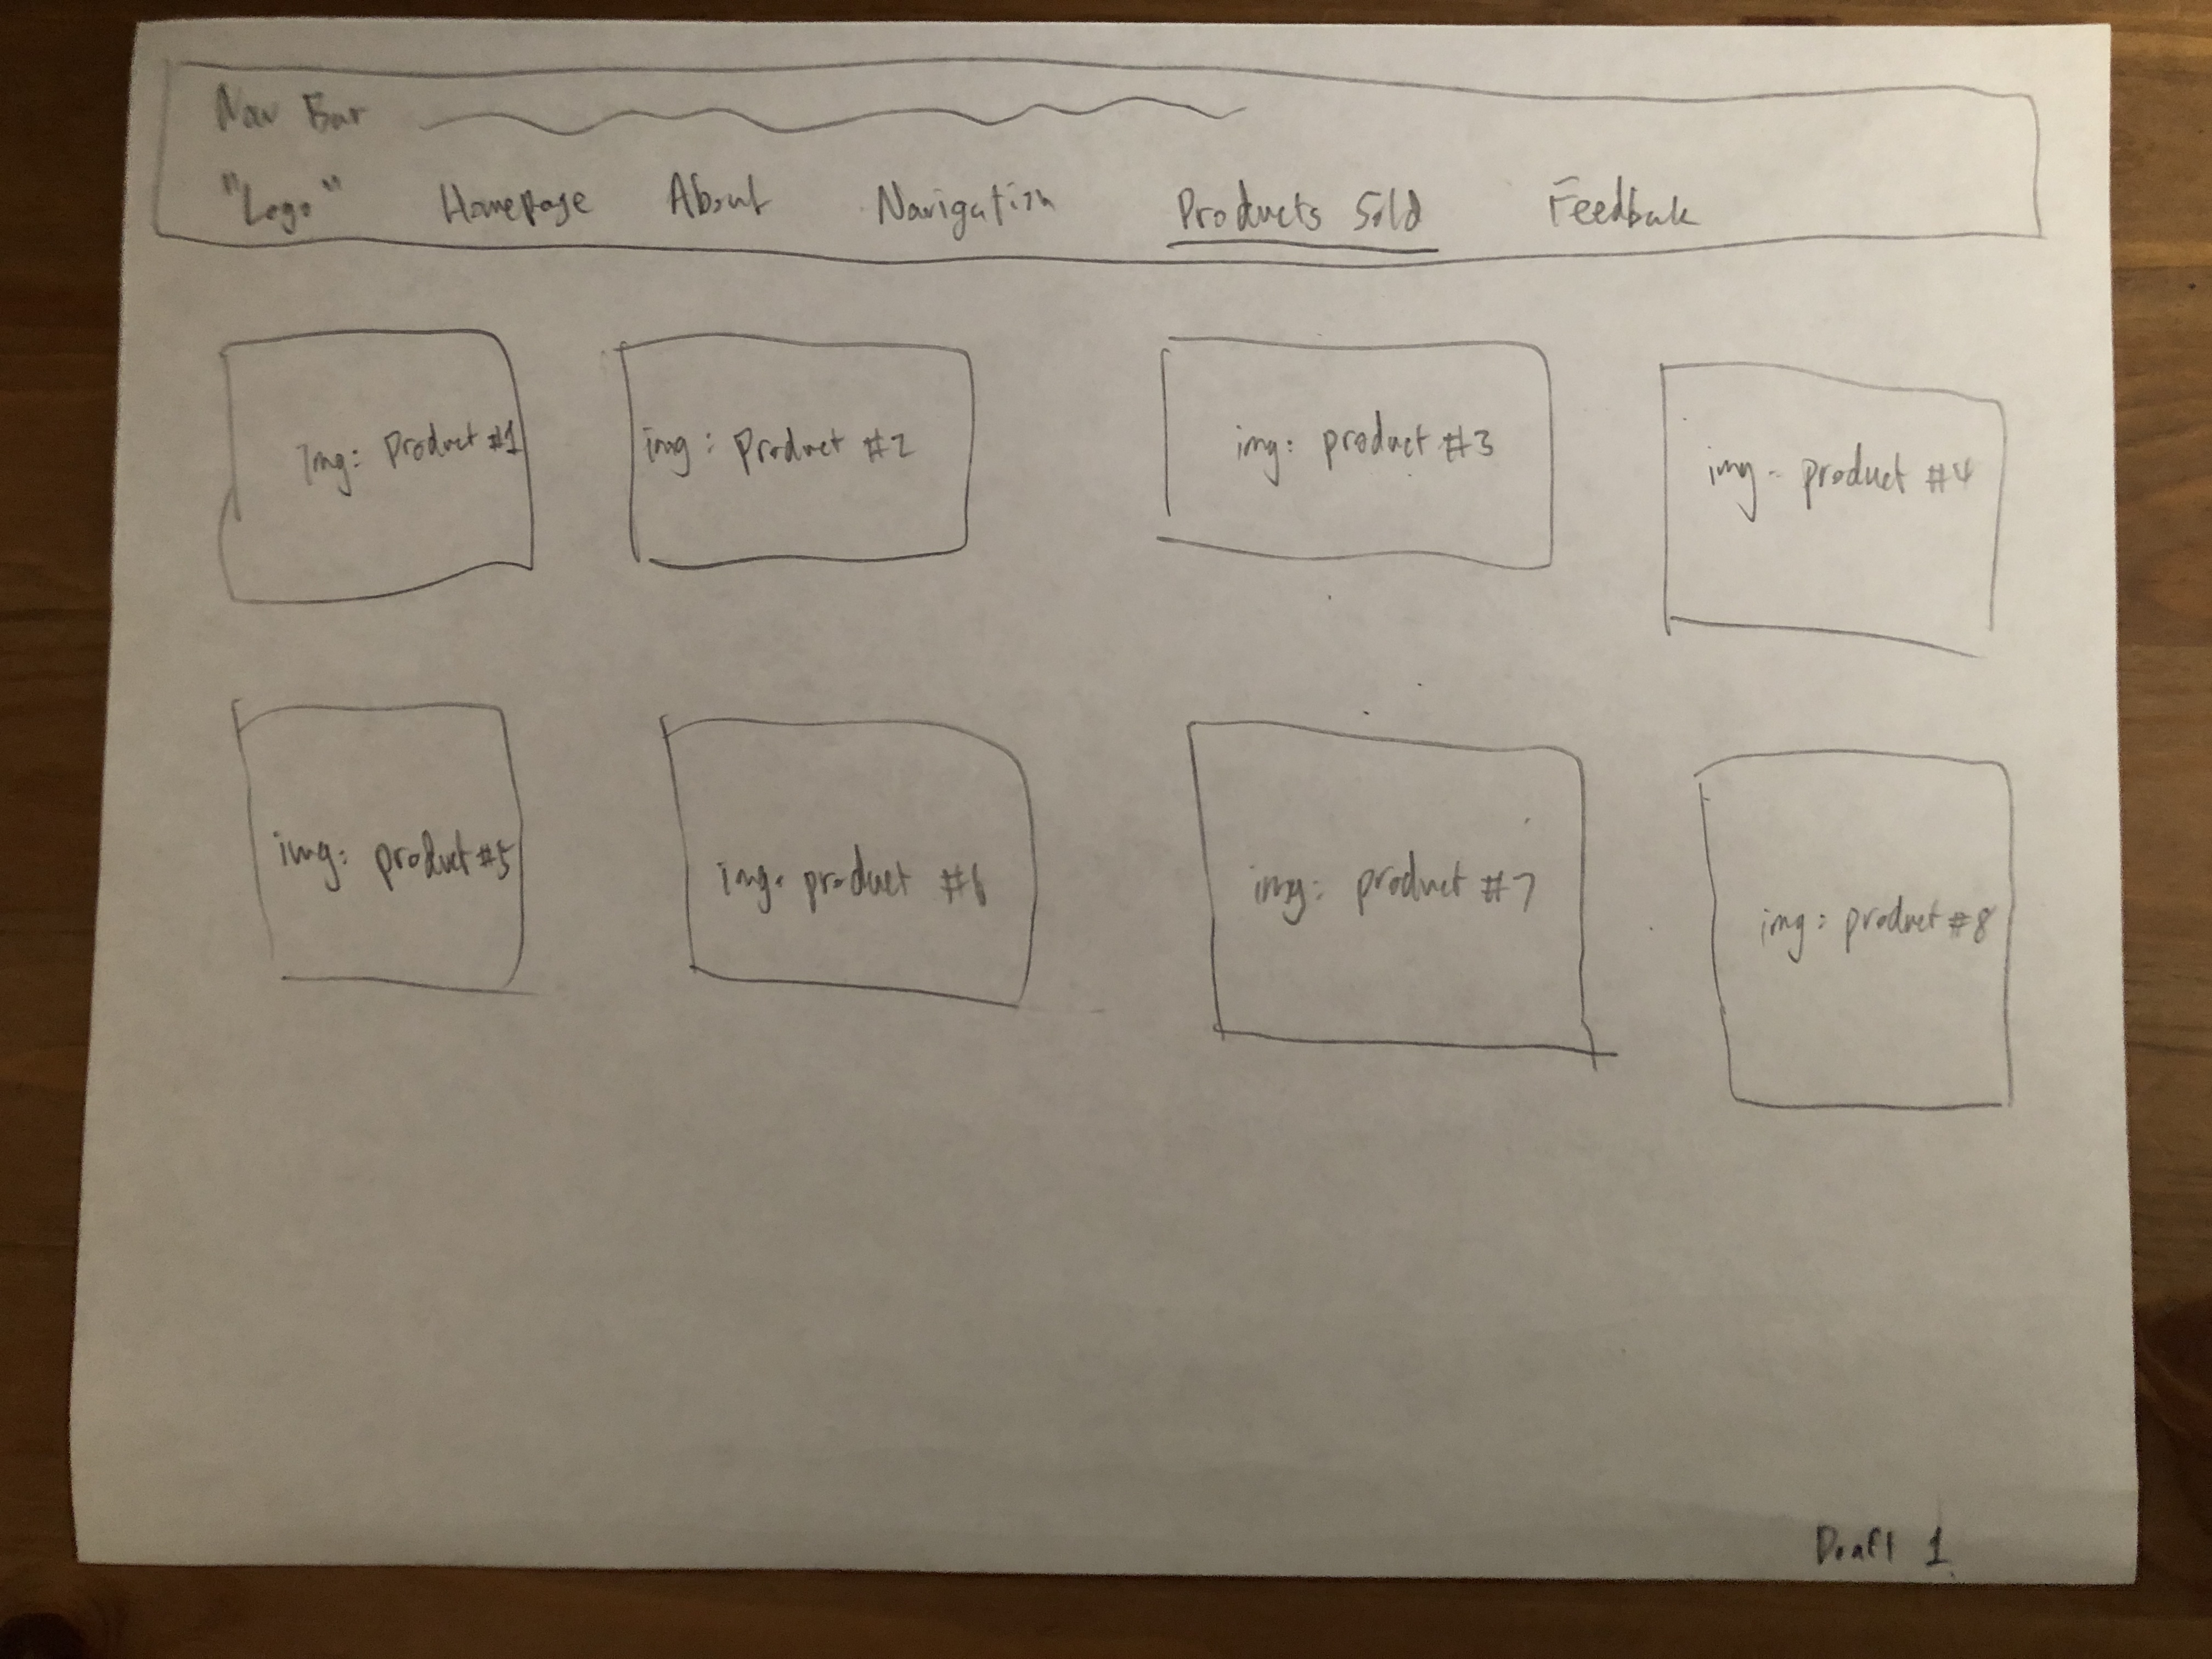 Nav Bar
"Logo" Homepage About Navigation Products Sold Feedback
Img: Product #1 img: Product #2 img: product #3 img: product #4
img: product #5 img: product #6 img: product #7 img: product #8
Draft 1